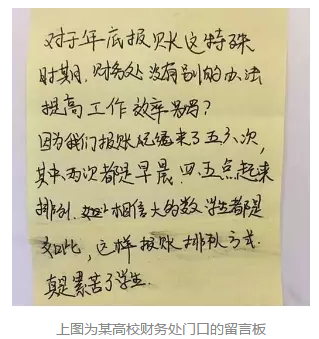 对于年底报账这特殊
时期，财务处没有别的办法
提高工作效率吗？
因为我们报账已经来了五、六次，
其中两次都是早晨四五点起来
排队. 相信大多数学生都是
如此，这样报账排队方式.
真是累苦了学生.
上图为某高校财务处门口的留言板